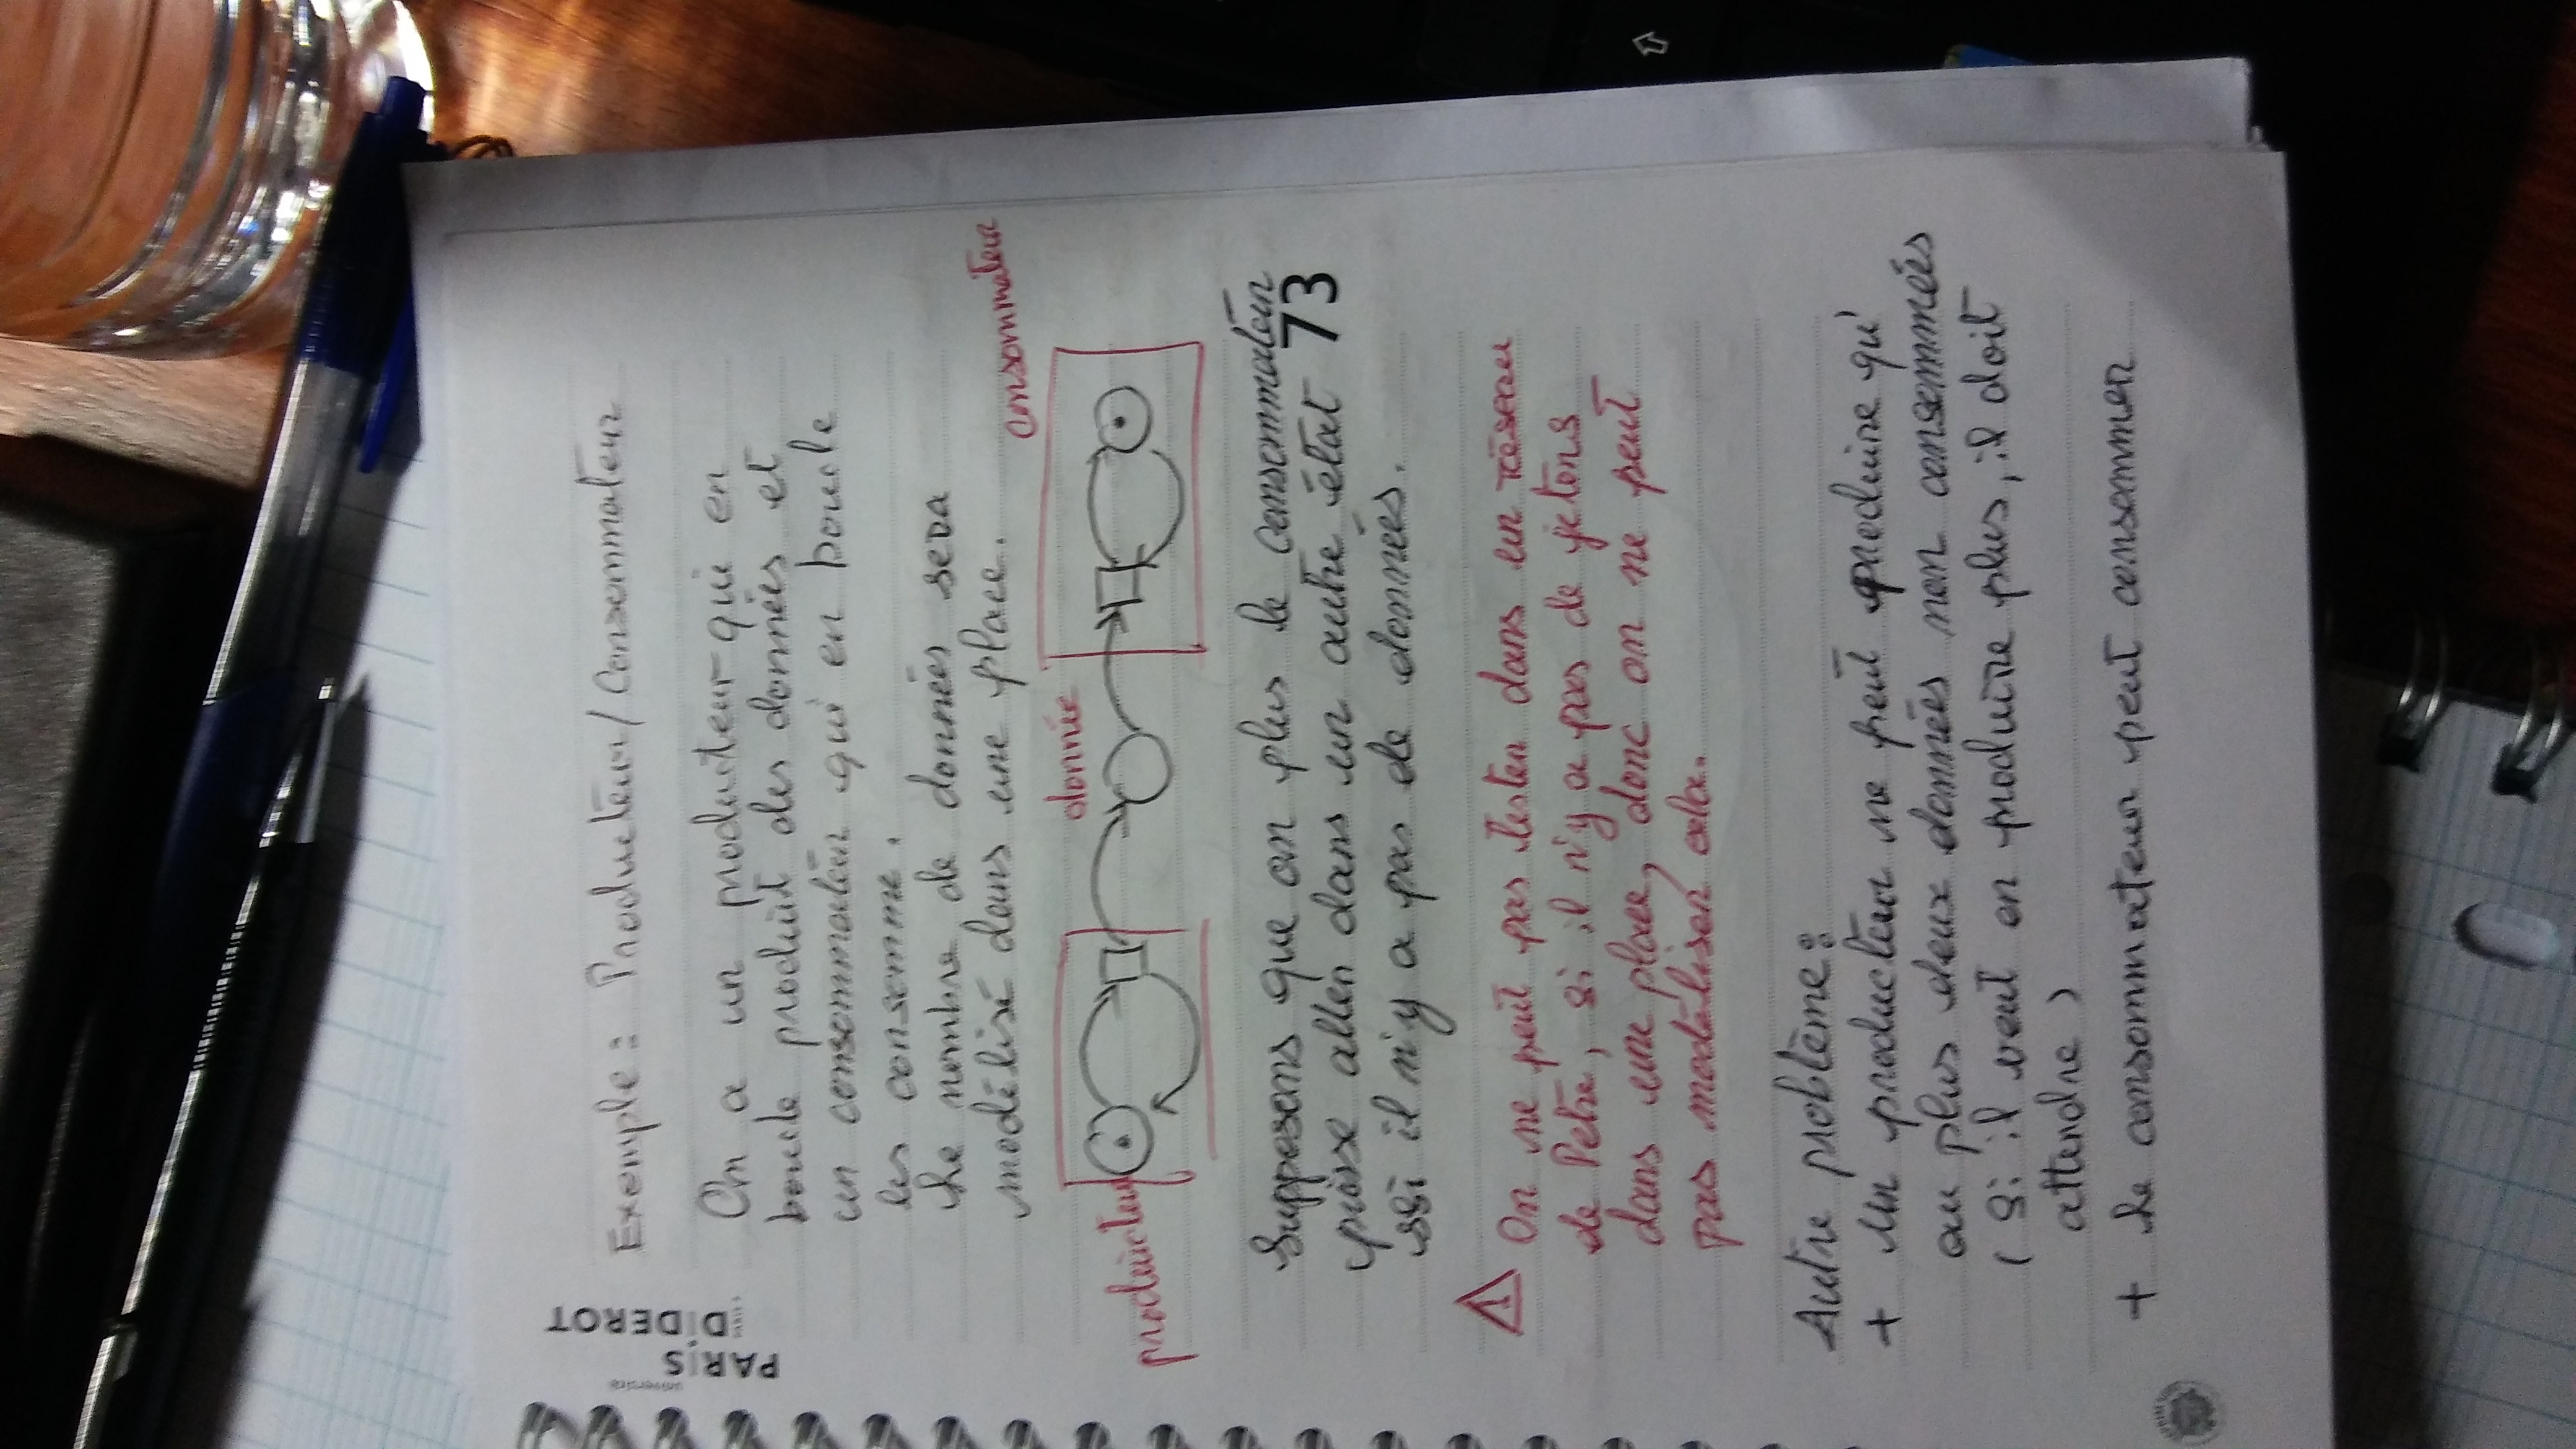 Université
PARIS
DIDEROT
Exemple : Producteur/Consommateur
On a un producteur qui en
boucle produit des données et
un consommateur qui en boucle
les consomme.
Le nombre de données sera
modélisé dans une place.
consommateur
donnée
producteur
Supposons que on plus le consommateur
puisse aller dans un autre état
ssi il n'y a pas de données.
73
! On ne peut pas tester dans un réseau
de Petri, si il n'y a pas de jetons
dans une place, donc on ne peut
pas modéliser cela.
Autre problème :
+ Un producteur ne peut produire qu'
au plus deux données non consommées
( Si il veut en produire plus, il doit
attendre )
+ Le consommateur peut consommer